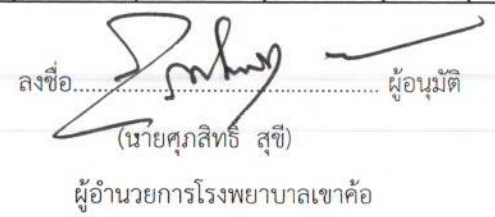 ลงชื่อ.................................................. ผู้อนุมัติ
(นายศุภสิทธิ์ สุขี)
ผู้อำนวยการโรงพยาบาลเขาค้อ